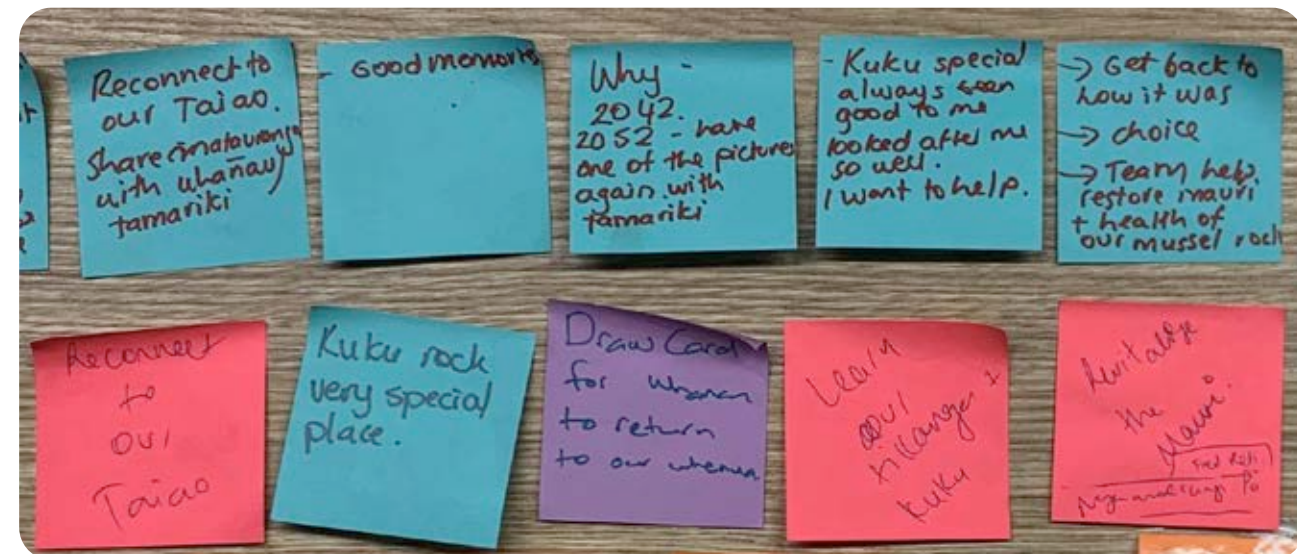 Reconnect to
our Taiao.
Share matauranga
with whānau/
tamariki
- Good memories
Why -
2042.
2052 - have
one of the pictures
again with
tamariki
- Kuku special
always been
good to me
looked after me
so well.
I want to help.
→ Get back to
how it was
→ choice
→ Team help
restore mauri
+ health of
our mussel rock
Reconnect
to
our
Taiao
Kuku rock
very special
place.
Draw Card
for whanau
to return
to our whenua
Learn
our
tikanga
kuku
Revitalize
the
Mauri.